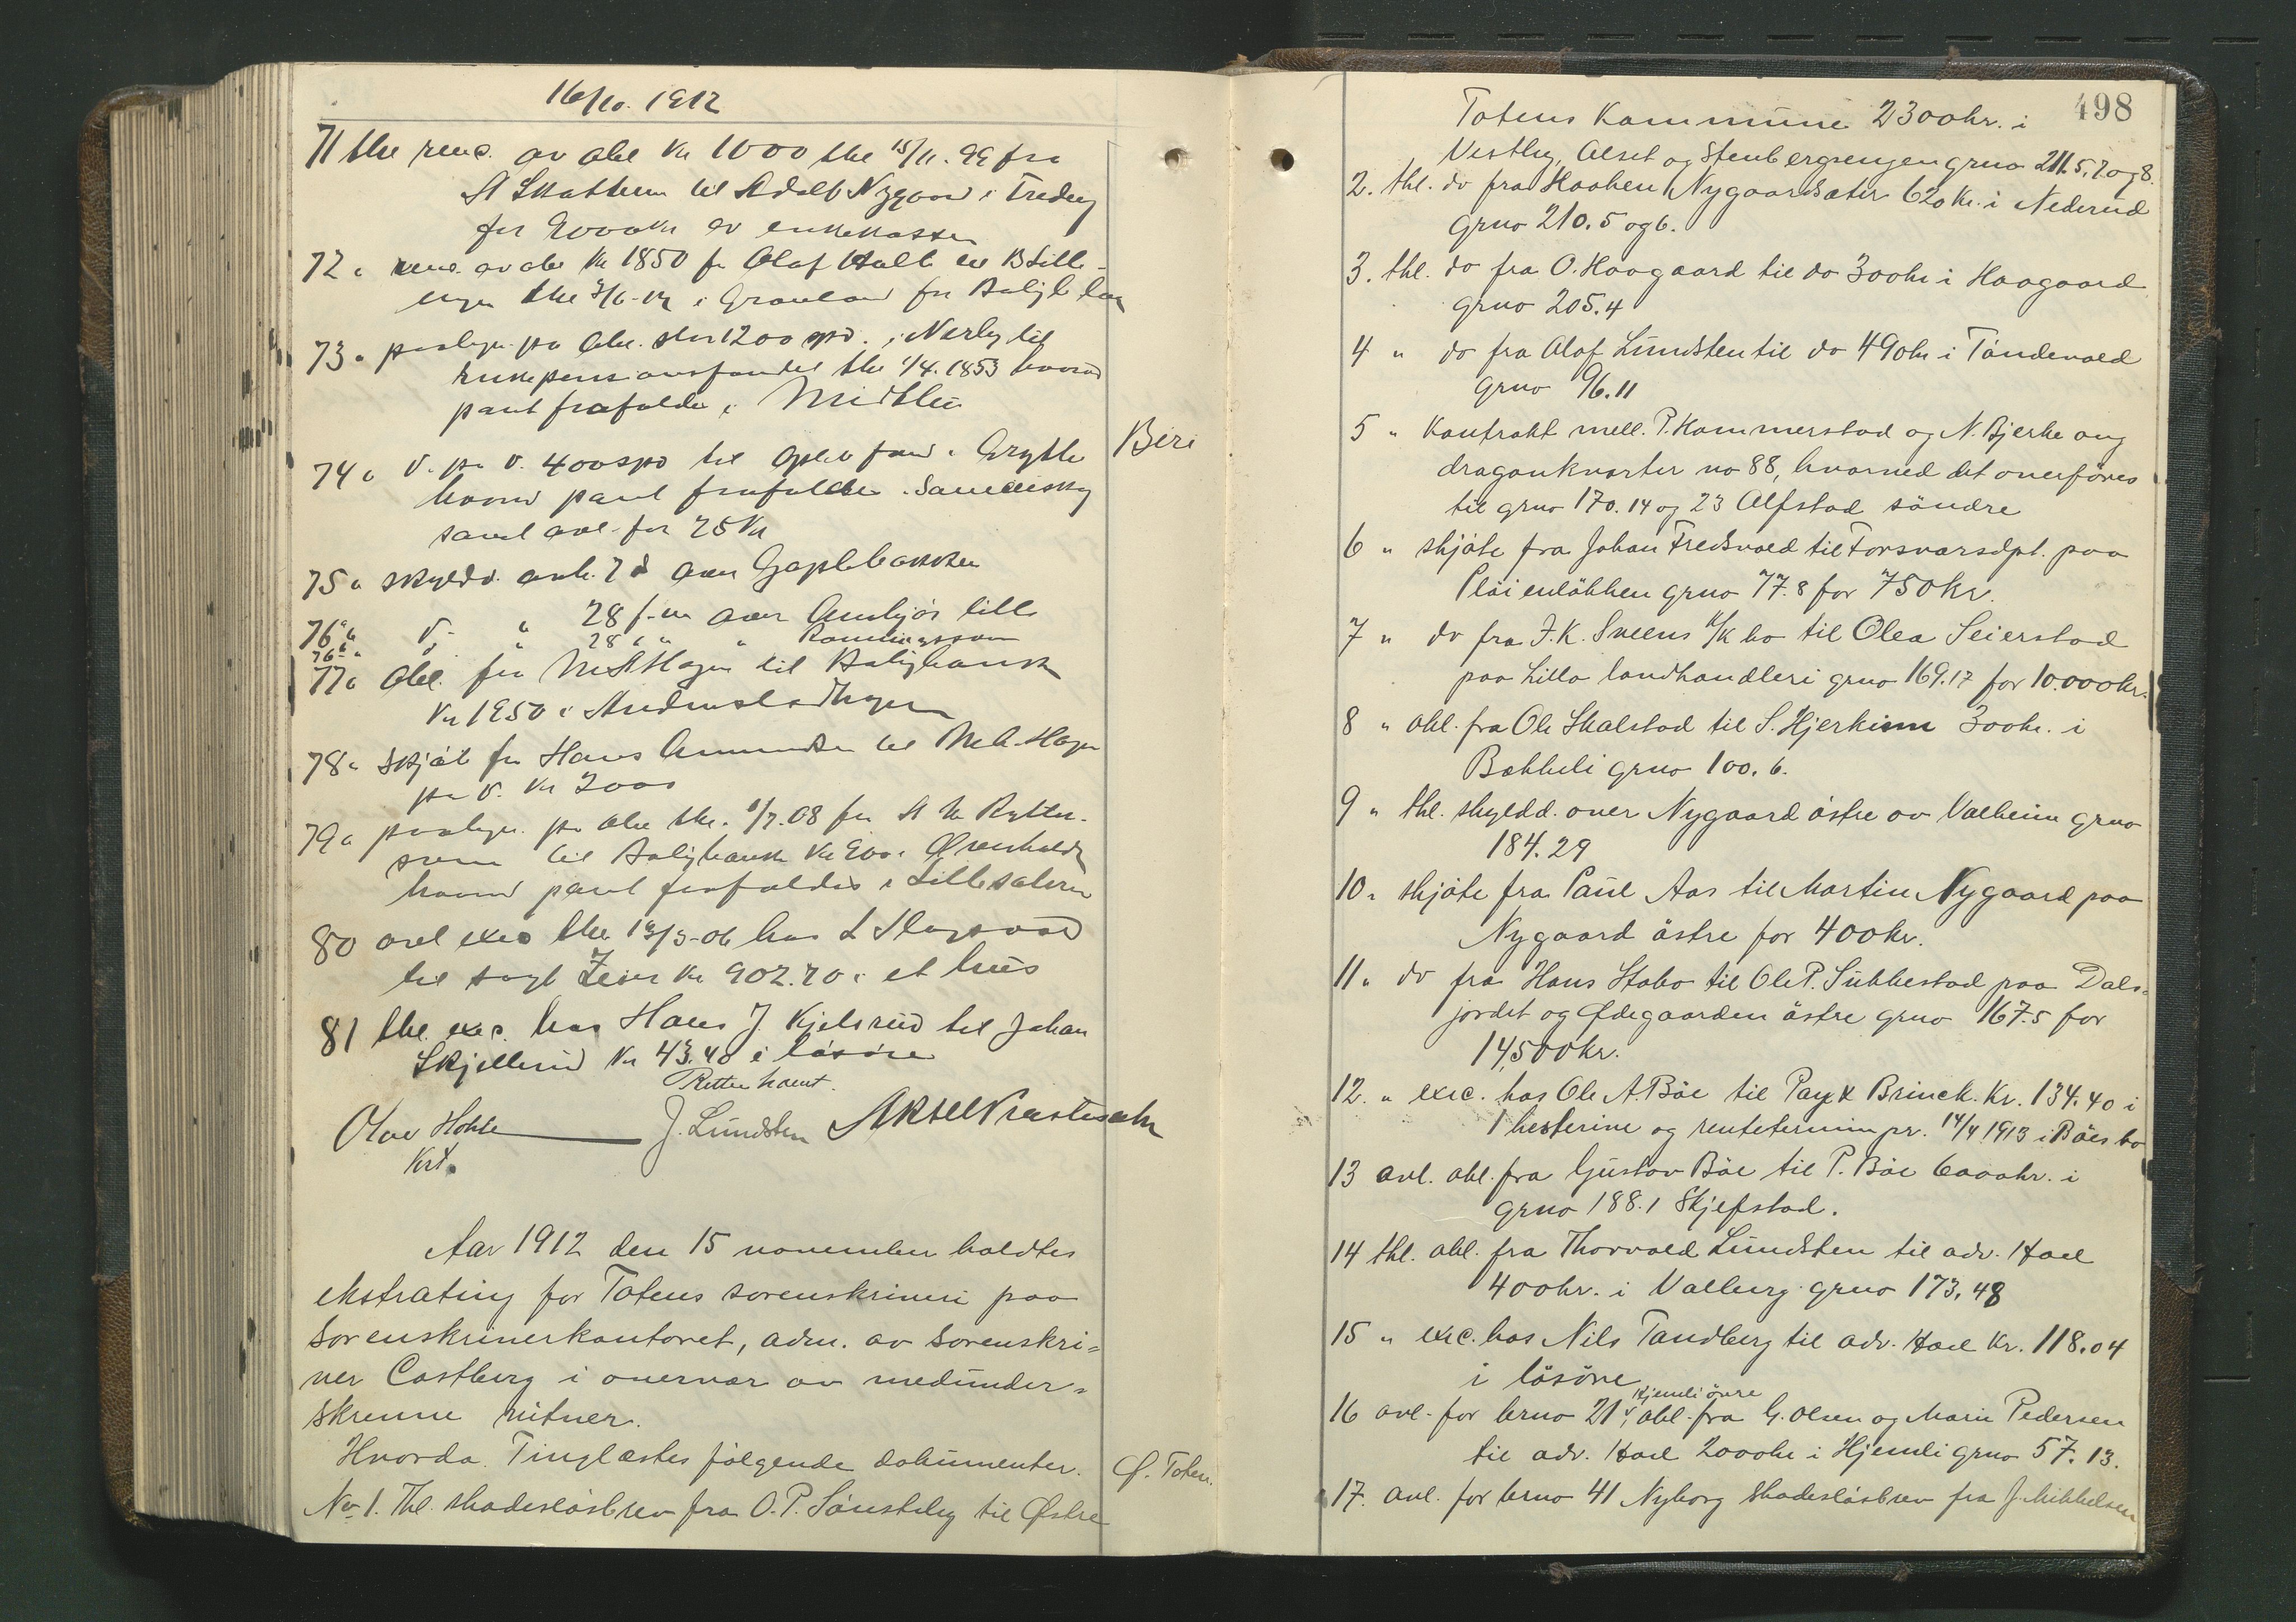 16/10. 1912
71 thl renc. av obl kr 1000 thl 15/11. 99 fra
A Skattum til Adolf Nygaard i Tredeng
for 9000 kr av enkekassen
72 " renc. av obl kr 1850 fr Olaf Hall til B Lille-
engen thl 3/6-12 i Grønland for
73 " paategn. pa obl. stor 1200 spd. i Nerby til
enkepensionsfondet thl 1/4. 1853 hvorved
pant frafaldes i Midtlien
Biri
74 " d. pa d. 400 spd til oplysn fond i Grytte
hvorved pant frafaldes i
samt avl for 25 kr
75 " skyldd. avh. 7 d over Gaplebakken
76a " d. " 28 f.m over Amlijor lille
76b " d. " 28 " " "
77 " Obl. fra M A Hagen til
kr 1950 i
78 " Skjöt fra Hans Amundsen til M A. Hagen
pa d. kr 2000
79 " paategn. pa obl thl. 8/7. 08 fra A M Rytter-
sveen til kr 900 i
hvorved pant frafaldes i Lillesæteren
80 avl exec thl 13/3-06 hos L
til sagf Zeier kr 902.70 i et hus
81 thl. exec. hos Hans J. Kjelsrud til Johan
Skjellerud kr 43.40 i lösöre
Retten hævet.
Olav Hohle J. Lundsten Aksel
Kst.
Aar 1912 den 15 november holdtes
ekstrating for Totens sorenskriveri paa
Sorenskriverkontoret, adm. av Sorenskri=
ver Castberg i overvær av medunder=
skrevne vitner.
Hvorda Tinglæstes fölgende dokumenter.
Ø. Toten.
No 1. Thl. skadeslösbrev fra O. P. Sönsteby til Østre
498
Totens Kommune 2300 kr. i
Vestby, Olset og Stenbergsengen grno 211.5,7 og 8.
2. thl. do fra Haaken Nygaardsæter 620 kr. i Nederud
grno 210.5 og 6.
3. thl. do fra O. Haagaard til do 300 kr i Haagaard
grno 205.4
4 " do fra Olaf Lundsten til do 490 kr i Töndevold
grno 96.11
5 " Kontrakt mell. P. Hammerstad og N. Bjerke ang
dragonkvarter no 88, hvorved det overföres
til grno 170.14 og 23 Alfstad söndre
6 " skjöte fra Johan Fredsvold til Forsvarsdpt. paa
Plöienlökken grno 77.8 for 750 kr.
7 " do fra J. K. Sveens k/k bo til Olea Seierstad
paa Lilla landhandleri grno 169.17 for 10.000 kr.
8 " obl. fra Ole Skalstad til S. Hjerkinn 300 kr. i
Bækkeli grno 100.6.
9 " thl. skyldd. over Nygaard östre av Valheim grno
184.29
10 " skjöte fra Paul Aas til Martin Nygaard paa
Nygaard östre for 400 kr.
11 " do fra Hans Stabo til Ole P. Sukkestad paa Dals=
jordet og Ødegaarden östre grno 167.5 for
14,500 kr.
12. " exec. hos Ole A. Böe til Pay & Brinck. Kr. 134.40 i
1 hesterive og rentetermin pr. 14/4 1913 i Böes bo
13 avl. obl. fra Gustav Böe til P. Böe 6000 kr. i
grno 188.1 Skjefstad.
14 thl. obl. fra Thorvald Lundsten til adv. Hoel
400 kr. i Valberg grno 173.48
15 " exec. hos Nils Tandberg til adv. Hoel Kr. 118.04
i lösöre
Hjemli övre
16 avl. for brno 21, obl. fra G. Olsen og Marie Pedersen
til adv. Hoel 2000 kr i Hjemli grno 57.13.
17. avl. for brno 41 Nyborg skadeslösbrev fra J. Mikkelsen